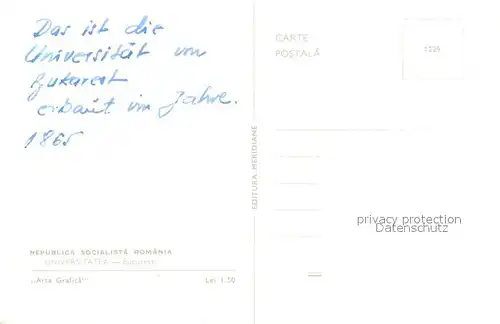 Das ist die
Universität von
Bukarest
erbaut im Jahre.
1865
CARTE
POȘTALĂ
1229
EDITURA MERIDIANE
privacy protection
Datenschutz
REPUBLICA SOCIALISTĂ ROMÂNIA
UNIVERSITATEA — București
„Arta Grafică"
Lei 1.50